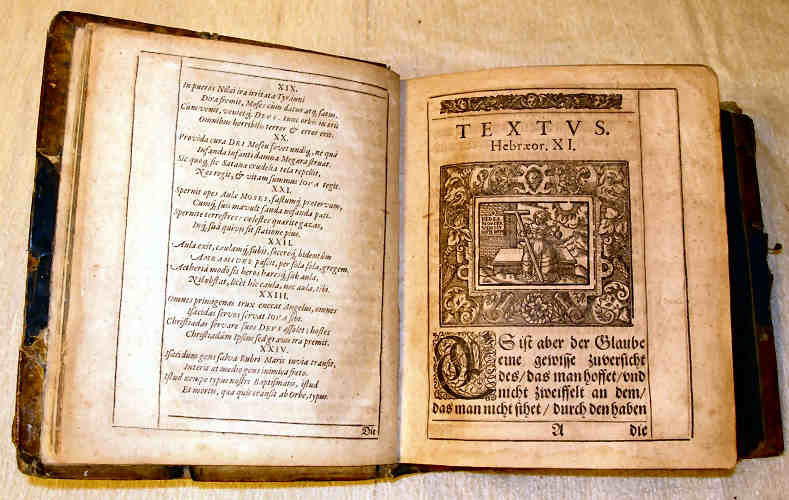 XIX.
In pueros Nilai ira irritata Tyranni
Dira fremit, Moses cum datur atq; satus.
Cum venit, venietq; DEVS, tunc orbis in
Omnibus horribilis terror & error erit.
XX.
Provida cura DEI Mosen fovet undiq;, ne quà
Infanda infanti damna Megæra struat.
Sic quoq; sic Satanæ crudelia tela repellit,
Nos regit, & vitam summus IOVA regit.
XXI.
Spernit opes Aulæ MOSES, fastumq; protervum,
Cumq; suis mavult fanda nefanda pati.
Spernite terrestres: cœlestes quærite gazas,
Inq; suâ quivis sit statione pius.
XXII.
Aula exit, caulamq; subit, soceroq; bidentum
AMRAMIDES pascit, per sola sola, gregem.
Aetheria modo sis heros hæresq; sub aula,
Nil obstat, licet hic caula, nec aula, tibi.
XXIII.
Omnes primogenas trux enecat Angelus, omnes
Isacidas servos servat IOVA sibi.
Christiadas servare suos DEVS assolet: hostes
Christiadûm Ipsius sed gravis ira premit.
XXIV.
Isacidûm gens salva Rubri Maris invia transit,
Interit at medio gens inimica freto.
Istud nempe typus nostri Baptismatis, istud
Et mortis, quâ quis transit ab Orbe, typus.
Die
TEXTVS.
Hebræor. XI.
ES ist aber der Glaube
eine gewisse zuversicht
des/das man hoffet/vnd
nicht zweiffelt an dem/
das man nicht sihet/durch den haben
A die